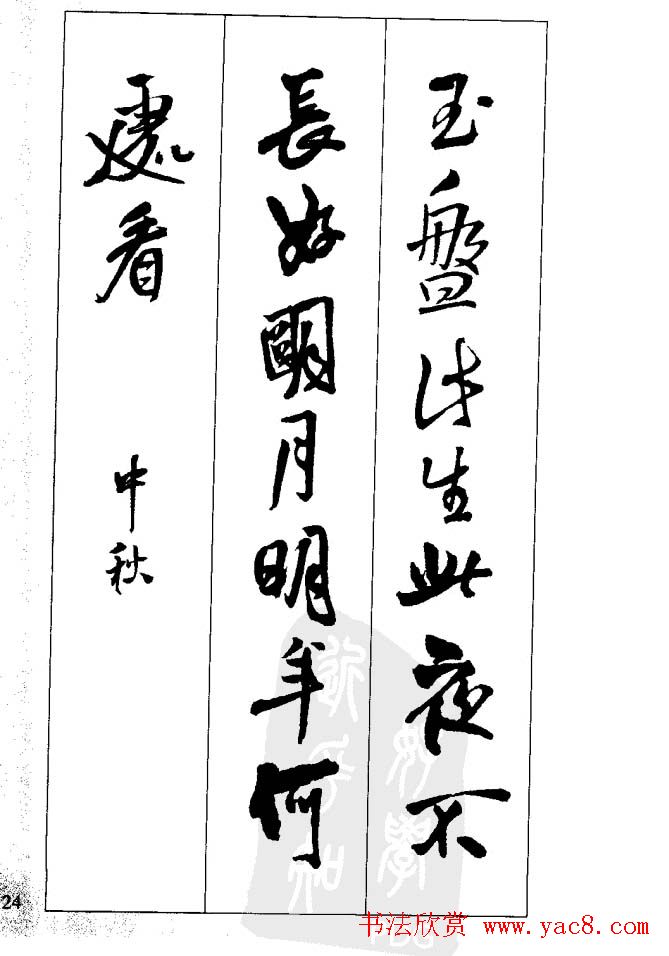 玉盤此生此夜不
長好朙月明年何
處看
中秋
24
书法欣赏 www.yac8.com